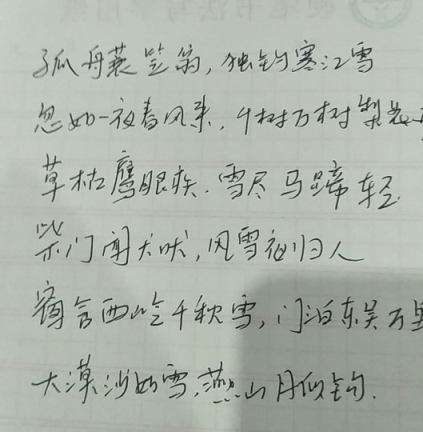 孤舟蓑笠翁，独钓寒江雪
忽如一夜春风来，千树万树梨花
草枯鹰眼疾．雪尽马蹄轻．
柴门闻犬吠，风雪夜归人
窗含西岭千秋雪，门泊东吴万里
大漠沙如雪，燕山月似钩．